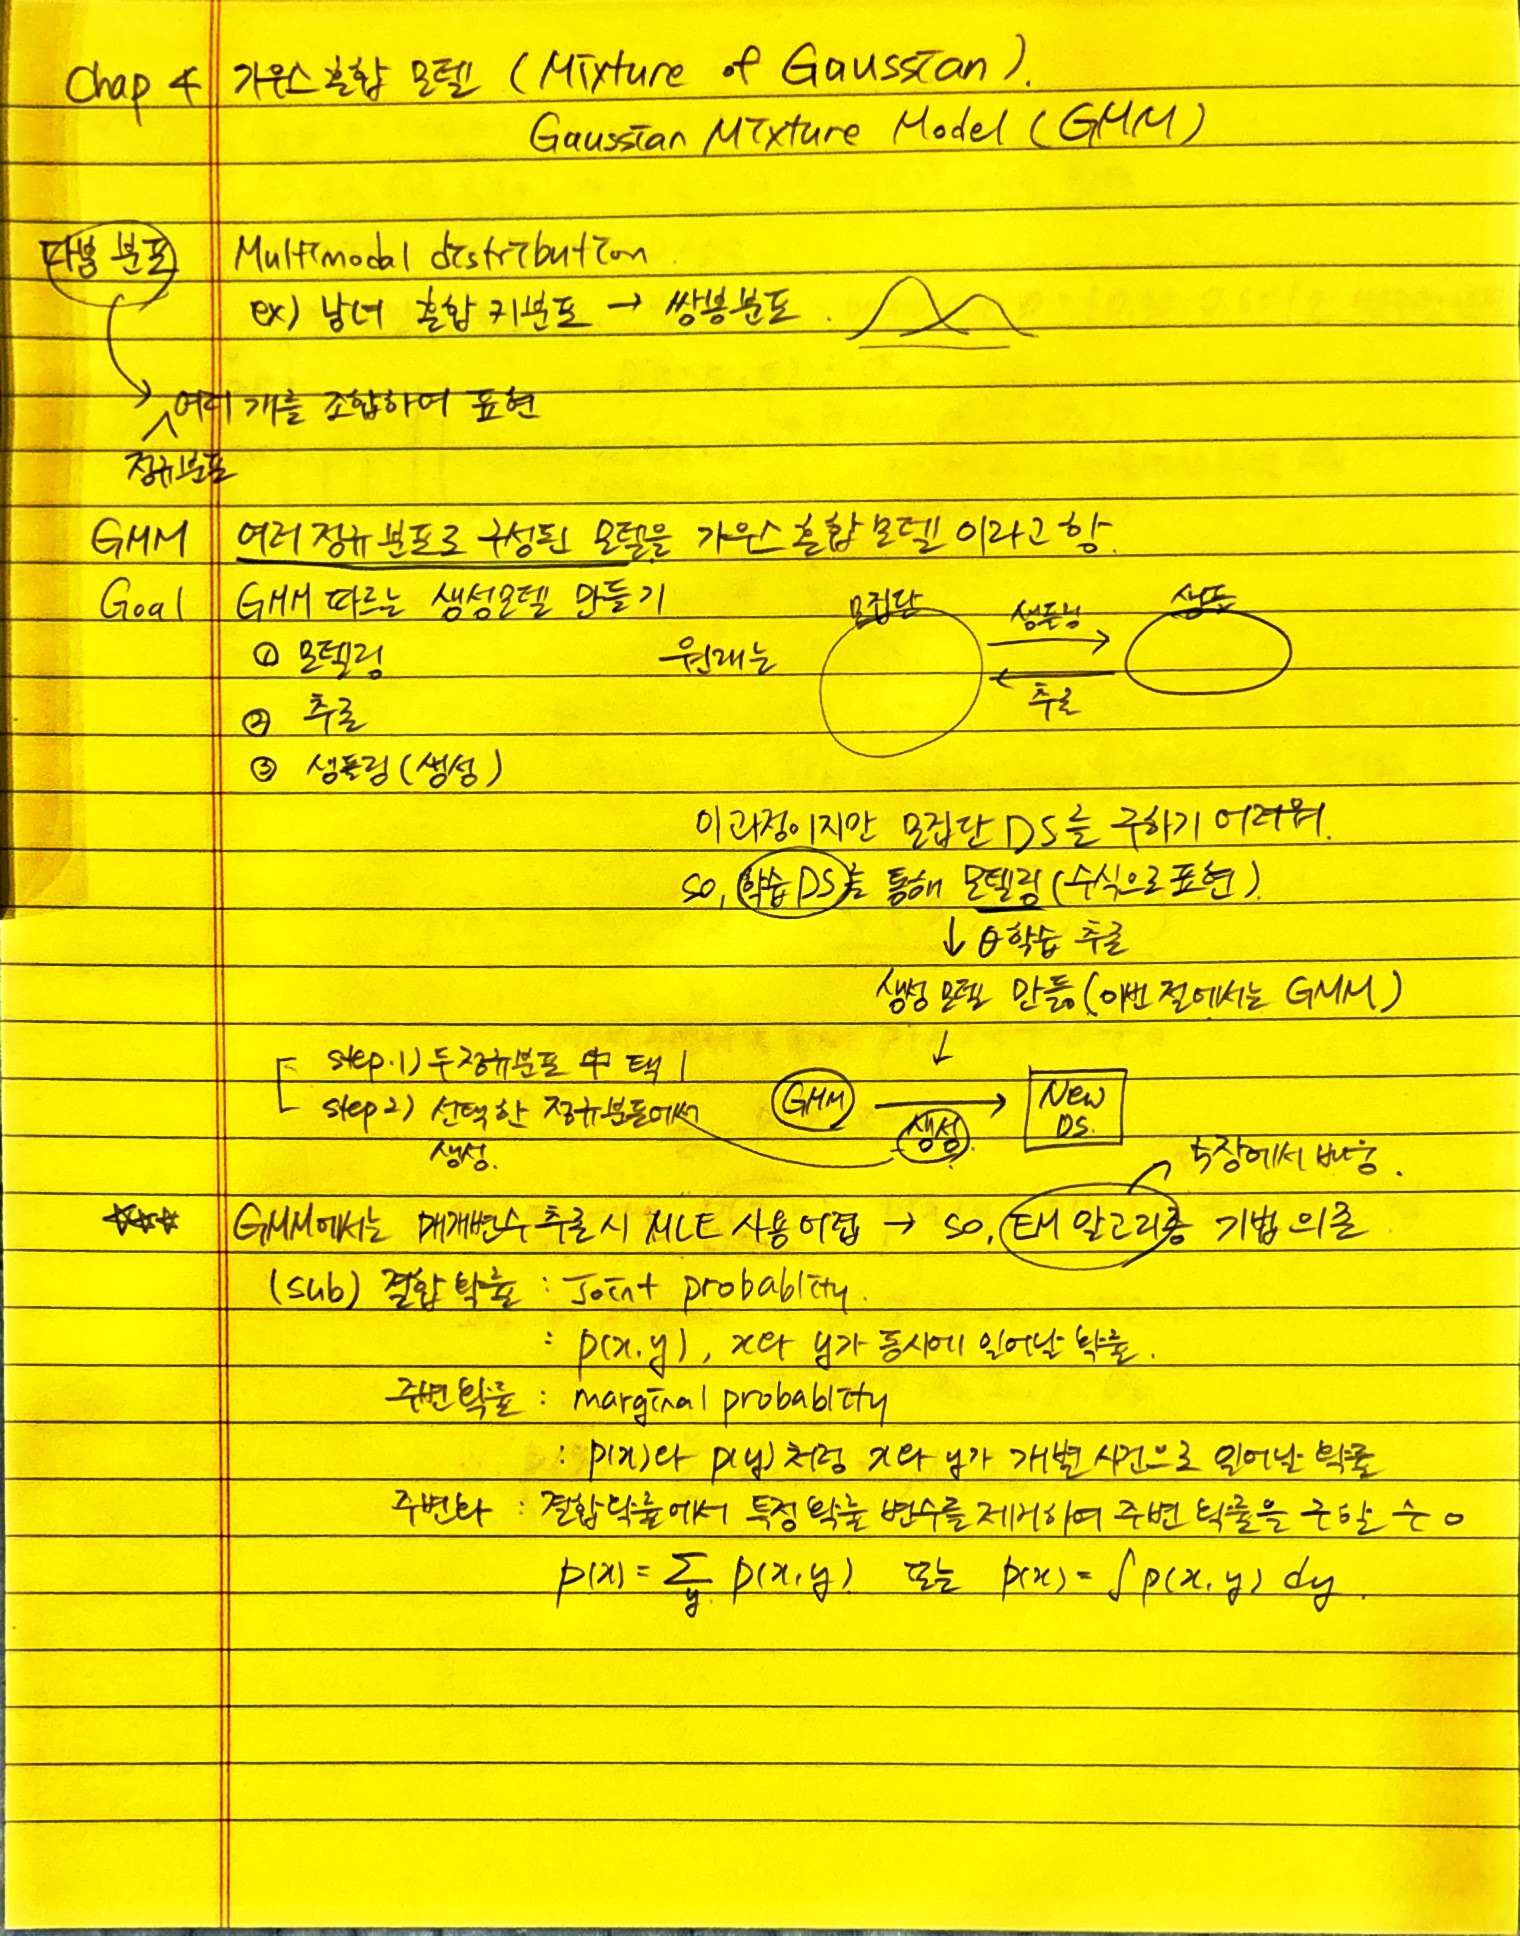 Chap 4 가우스 혼합 모델 (Mixture of Gaussian).
Gaussian Mixture Model (GMM)
다봉 분포 Multimodal distribution.
ex) 남녀 혼합 키분포 → 쌍봉분포.
여러 개를 조합하여 표현
정규분포
GMM 여러 정규분포로 구성된 모델을 가우스 혼합 모델 이라고 함.
Goal GMM 따르는 생성모델 만들기
① 모델링
② 추론
③ 샘플링 (생성)
원래는 모집단 샘플링 샘플
추론
이 과정이지만 모집단 DS를 구하기 어려워.
so, 학습 DS를 통해 모델링 (수식으로 표현).
↓ θ학습 추론
생성 모델 만듦 (이번 절에서는 GMM)
↓
step.1) 두 정규분포 中 택 1
step 2) 선택한 정규분포에서
생성.
GMM → New DS.
생성
*** GMM에서는 매개변수 추론 시 MLE 사용 어렵 → so, EM 알고리즘 기법 의존
5장에서 배움.
(sub) 결합 확률 : Joint probablity.
: p(x,y), x와 y가 동시에 일어날 확률.
주변 확률 : marginal probablity
: p(x)와 p(y)처럼 x와 y가 개별 사건으로 일어날 확률
주변화 : 결합확률에서 특정 확률 변수를 제거하여 주변 확률을 구할 수 o
p(x) = Σ_y p(x,y). 또는 p(x) = ∫ p(x,y) dy.